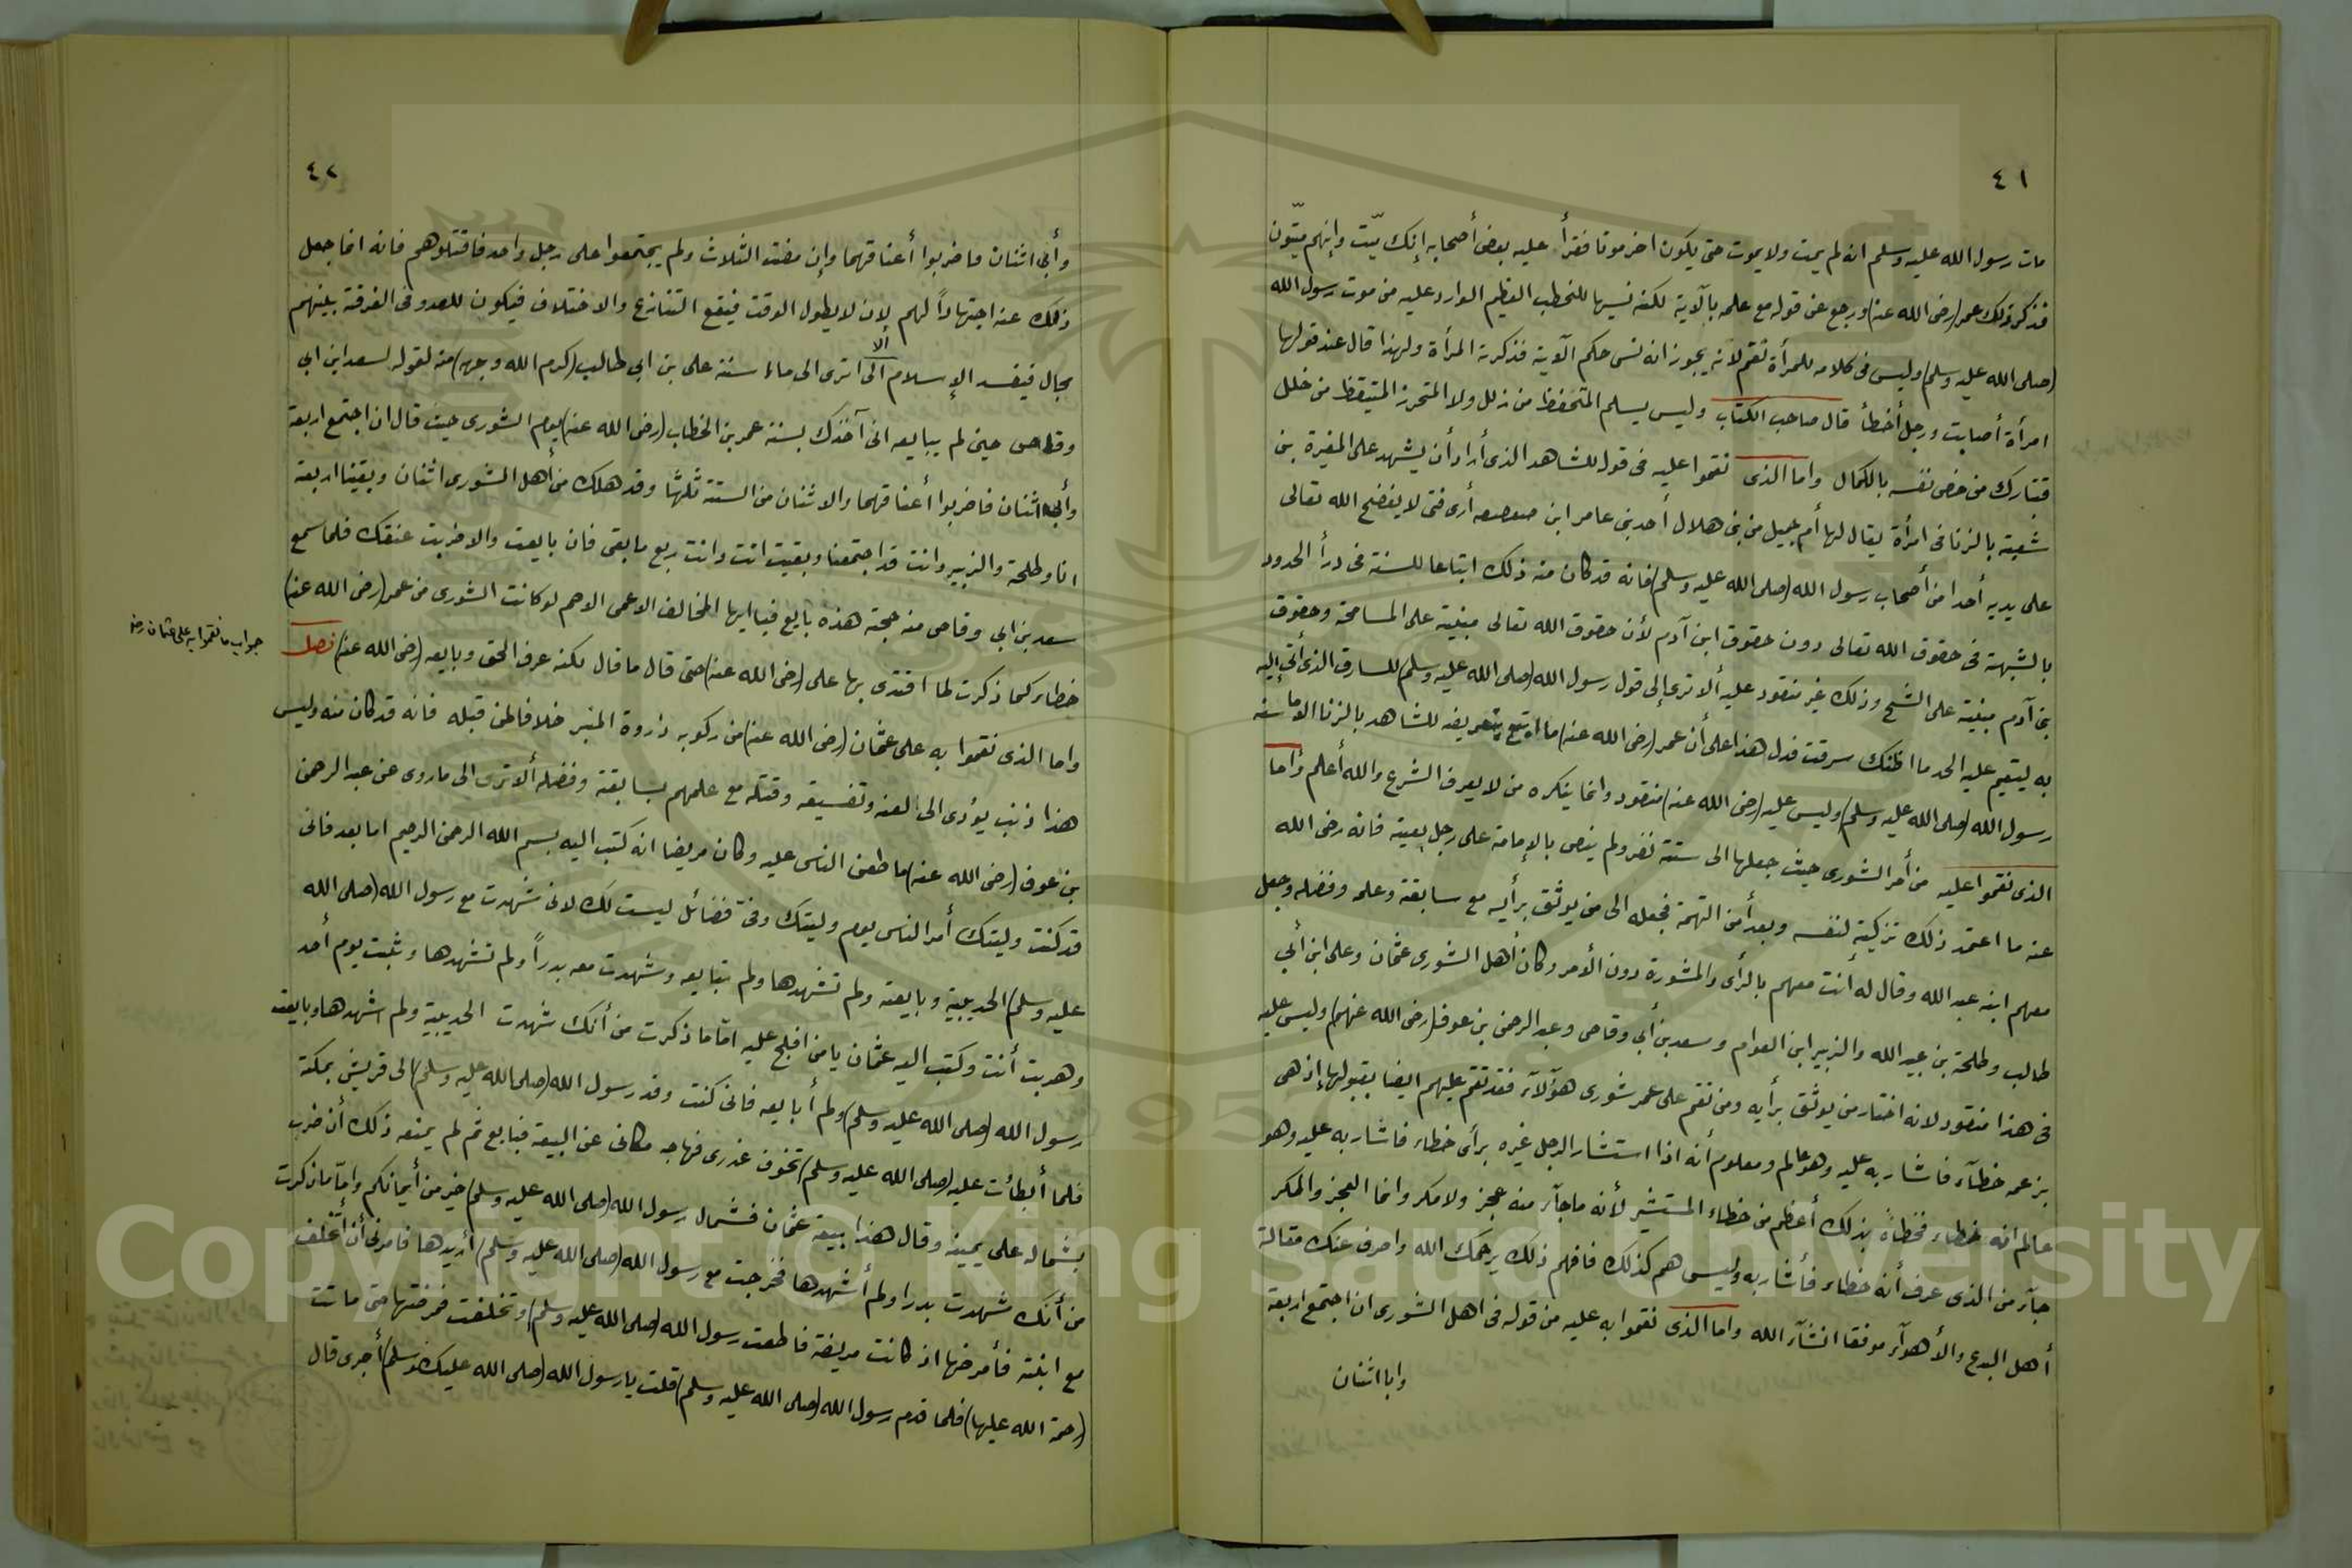 ٤١
مات رسول الله عليه وسلم انه لم يمت ولا يموت حتى يكون اخر موتا فقرأ عليه بعض أصحابه إنك ميّت وإنهم ميّتون
فذكر ذلك عمر (رضى الله عنه) ورجع عن قوله مع علمه بالآية لكنه نسيها للخطب العظيم الوارد عليه من موت رسول الله
(صلى الله عليه وسلم) وليس فى كلامه للمرأة نقم لأنه يجوز انه نسى حكم الآية فذكرته المرأة ولهذا قال عند قولها
امرأة أصابت ورجل أخطأ قال صاحب الكتاب وليس يسلم المتحفظ من زلل ولا المتحرز المتيقظ من خلل
فتبارك من خص نفسه بالكمال واما الذى نقموا عليه فى قوله للشاهد الذى أراد أن يشهد على المغيرة بن
شعبة بالزنا فى امرأة يقال لها أم جميل من بنى هلال أحد بنى عامر ابن صعصعه أرى فتى لا يفضح الله تعالى
على يديه أحدا من أصحاب رسول الله (صلى الله عليه وسلم) فانه قد كان منه ذلك ابتاعا للسنة فى درأ الحدود
بالشبهة فى حقوق الله تعالى دون حقوق ابن آدم لأن حقوق الله تعالى مبنية على المسامحة وحقوق
بنى آدم مبنية على الشح وذلك غير منقود عليه ألا ترى إلى قول رسول الله (صلى الله عليه وسلم) للسارق الذى أتى إليه
به ليقيم عليه الحد ما اظنك سرقت فدل هذا على أن عمر (رضى الله عنه) ما اتبع بتعريضه للشاهد بالزنا الا ما سنه
رسول الله (صلى الله عليه وسلم) وليس عليه (رضى الله عنه) منقود وانما ينكره من لا يعرف الشرع والله أعلم وأما
الذى نقموا عليه من أمر الشورى حيث جعلها الى ستة نفر ولم ينص بالإمامة على رجل بعينه فانه رضى الله
عنه ما اعتمد ذلك تزكية لنفسه وبعد أمن التهمة فجعله الى من يوثق برأيه مع سابقته وعلمه وفضله وجعل
معهم ابنه عبد الله وقال له أنت معهم بالرأى والمشورة دون الأمر وكان أهل الشورى عثمان وعلى ابن أبي
طالب وطلحة بن عبيد الله والزبير ابن العوام وسعد بن أبي وقاص وعبد الرحمن بن عوف (رضى الله عنهم) وليس عليه
فى هذا منقود لانه اختار من يوثق برأيه ومن نقم على عمر شورى هؤلآء فقد نقم عليهم ايضا بقبولها إذ هى
بزعمه خطآء فاشار به عليه وهو عالم ومعلوم أنه اذا استشار الرجل غيره برأى خطاء فاشار به عليه وهو
عالم انه خطاء فخطأه بذلك أعظم من خطاء المستشير لأنه ماجآء منه عجز ولا مكر وانما العجز والمكر
جآء من الذى عرف أنه خطاء فأشار به وليس هم كذلك فافهم ذلك يرحمك الله واصرف عنك مقالة
أهل البدع والأهوآء موفقا انشآء الله واما الذى نقموا به عليه من قوله فى اهل الشورى ان اجتمع اربعة
وابا اثنان
٤٢
وأبى اثنان فاضربوا أعناقهما وإن مضت الثلاث ولم يجتمعوا على رجل واحد فاقتلوهم فانه انما جعل
ذلك عنه اجتهاداً لهم لان لا يطول الوقت فيقع التنازع والاختلاف فيكون للعدو فى الفرقة بلينهم
مجال فيفسد الإسلام الى ألا ترى الى ماء سنة على بن ابي طالب (كرم الله وجهه) منه لقوله لسعد ابن ابي
وقاص حين لم يبايعه انى آخذك بسنة عمر بن الخطاب (رضى الله عنه) يوم الشورى حيث قال ان اجتمع اربعة
وأبى اثنان فاضربوا أعناقهما والاثنان من الستة ثلثها وقد هلك من أهل الشورى اثنان وبقينا اربعة
انا وطلحة والزبير وانت قد اجتمعنا وبقيت انت وانت ربع ما بقى فان بايعت والا ضربت عنقك فلما سمع
سعد بن ابي وقاص منه حجته هذه بايع فيا ايها المخالف الاعمى الاصم لو كانت الشورى من عمر (رضى الله عنه)
خطاء كما ذكرت لما اقتدى بها على (رضى الله عنه) حتى قال ما قال لكنه عرف الحق وبايعه (رضى الله عنه) فصل
جواب ما نقموا به على عثمان رضه
واما الذى نقموا به على عثمان (رضى الله عنه) من ركوبه ذروة المنبر خلافا لمن قبله فانه قد كان منه وليس
هذا ذنب يؤدى الى لعنه وتفسيقه وقتله مع علمهم بسابقته وفضله ألا ترى الى ماروى عن عبد الرحمن
بن عوف (رضى الله عنه) ما طعن الناس عليه وكان مريضا انه كتب اليه بسم الله الرحمن الرحيم اما بعد فانى
قد كنت وليتك أمر الناس يوم وليتك وفىّ فضائل ليست لك لانى شهدت مع رسول الله (صلى الله
عليه وسلم) الحديبية وبايعته ولم تشهدها ولم تبايعه وشهدت معه بدراً ولم تشهدها وثبت يوم أحد
وهربت أنت وكتب اليه عثمان يا من افلج عليه امّا ما ذكرت من أنك شهدت الحديبية ولم اشهدها وبايعت
رسول الله (صلى الله عليه وسلم) ولم أبايعه فانى كنت وفد رسول الله (صلى الله عليه وسلم) الى قريش بمكة
فلما أبطأت عليه (صلى الله عليه وسلم) تخوف غدرى فهاجه مكانى عن البيعة فبايع ثم لم يمنعه ذلك أن ضرب
بشماله على يمينه وقال هذا بيعة عثمان فشمال رسول الله (صلى الله عليه وسلم) خير من أيمانكم وامّا ما ذكرت
من أنك شهدت بدرا ولم أشهدها فخرجت مع رسول الله (صلى الله عليه وسلم) أريدها فامرنى أن أتخلف
مع ابنته فأمرضها اذ كانت مريضة فاطعت رسول الله (صلى الله عليه وسلم) وتخلفت فمرضتها حتى ماتت
(رحمة الله عليها) فلما قدم رسول الله (صلى الله عليه وسلم) قلت يا رسول الله (صلى الله عليك وسلم) أجرى قال
Copyright © King Saud University